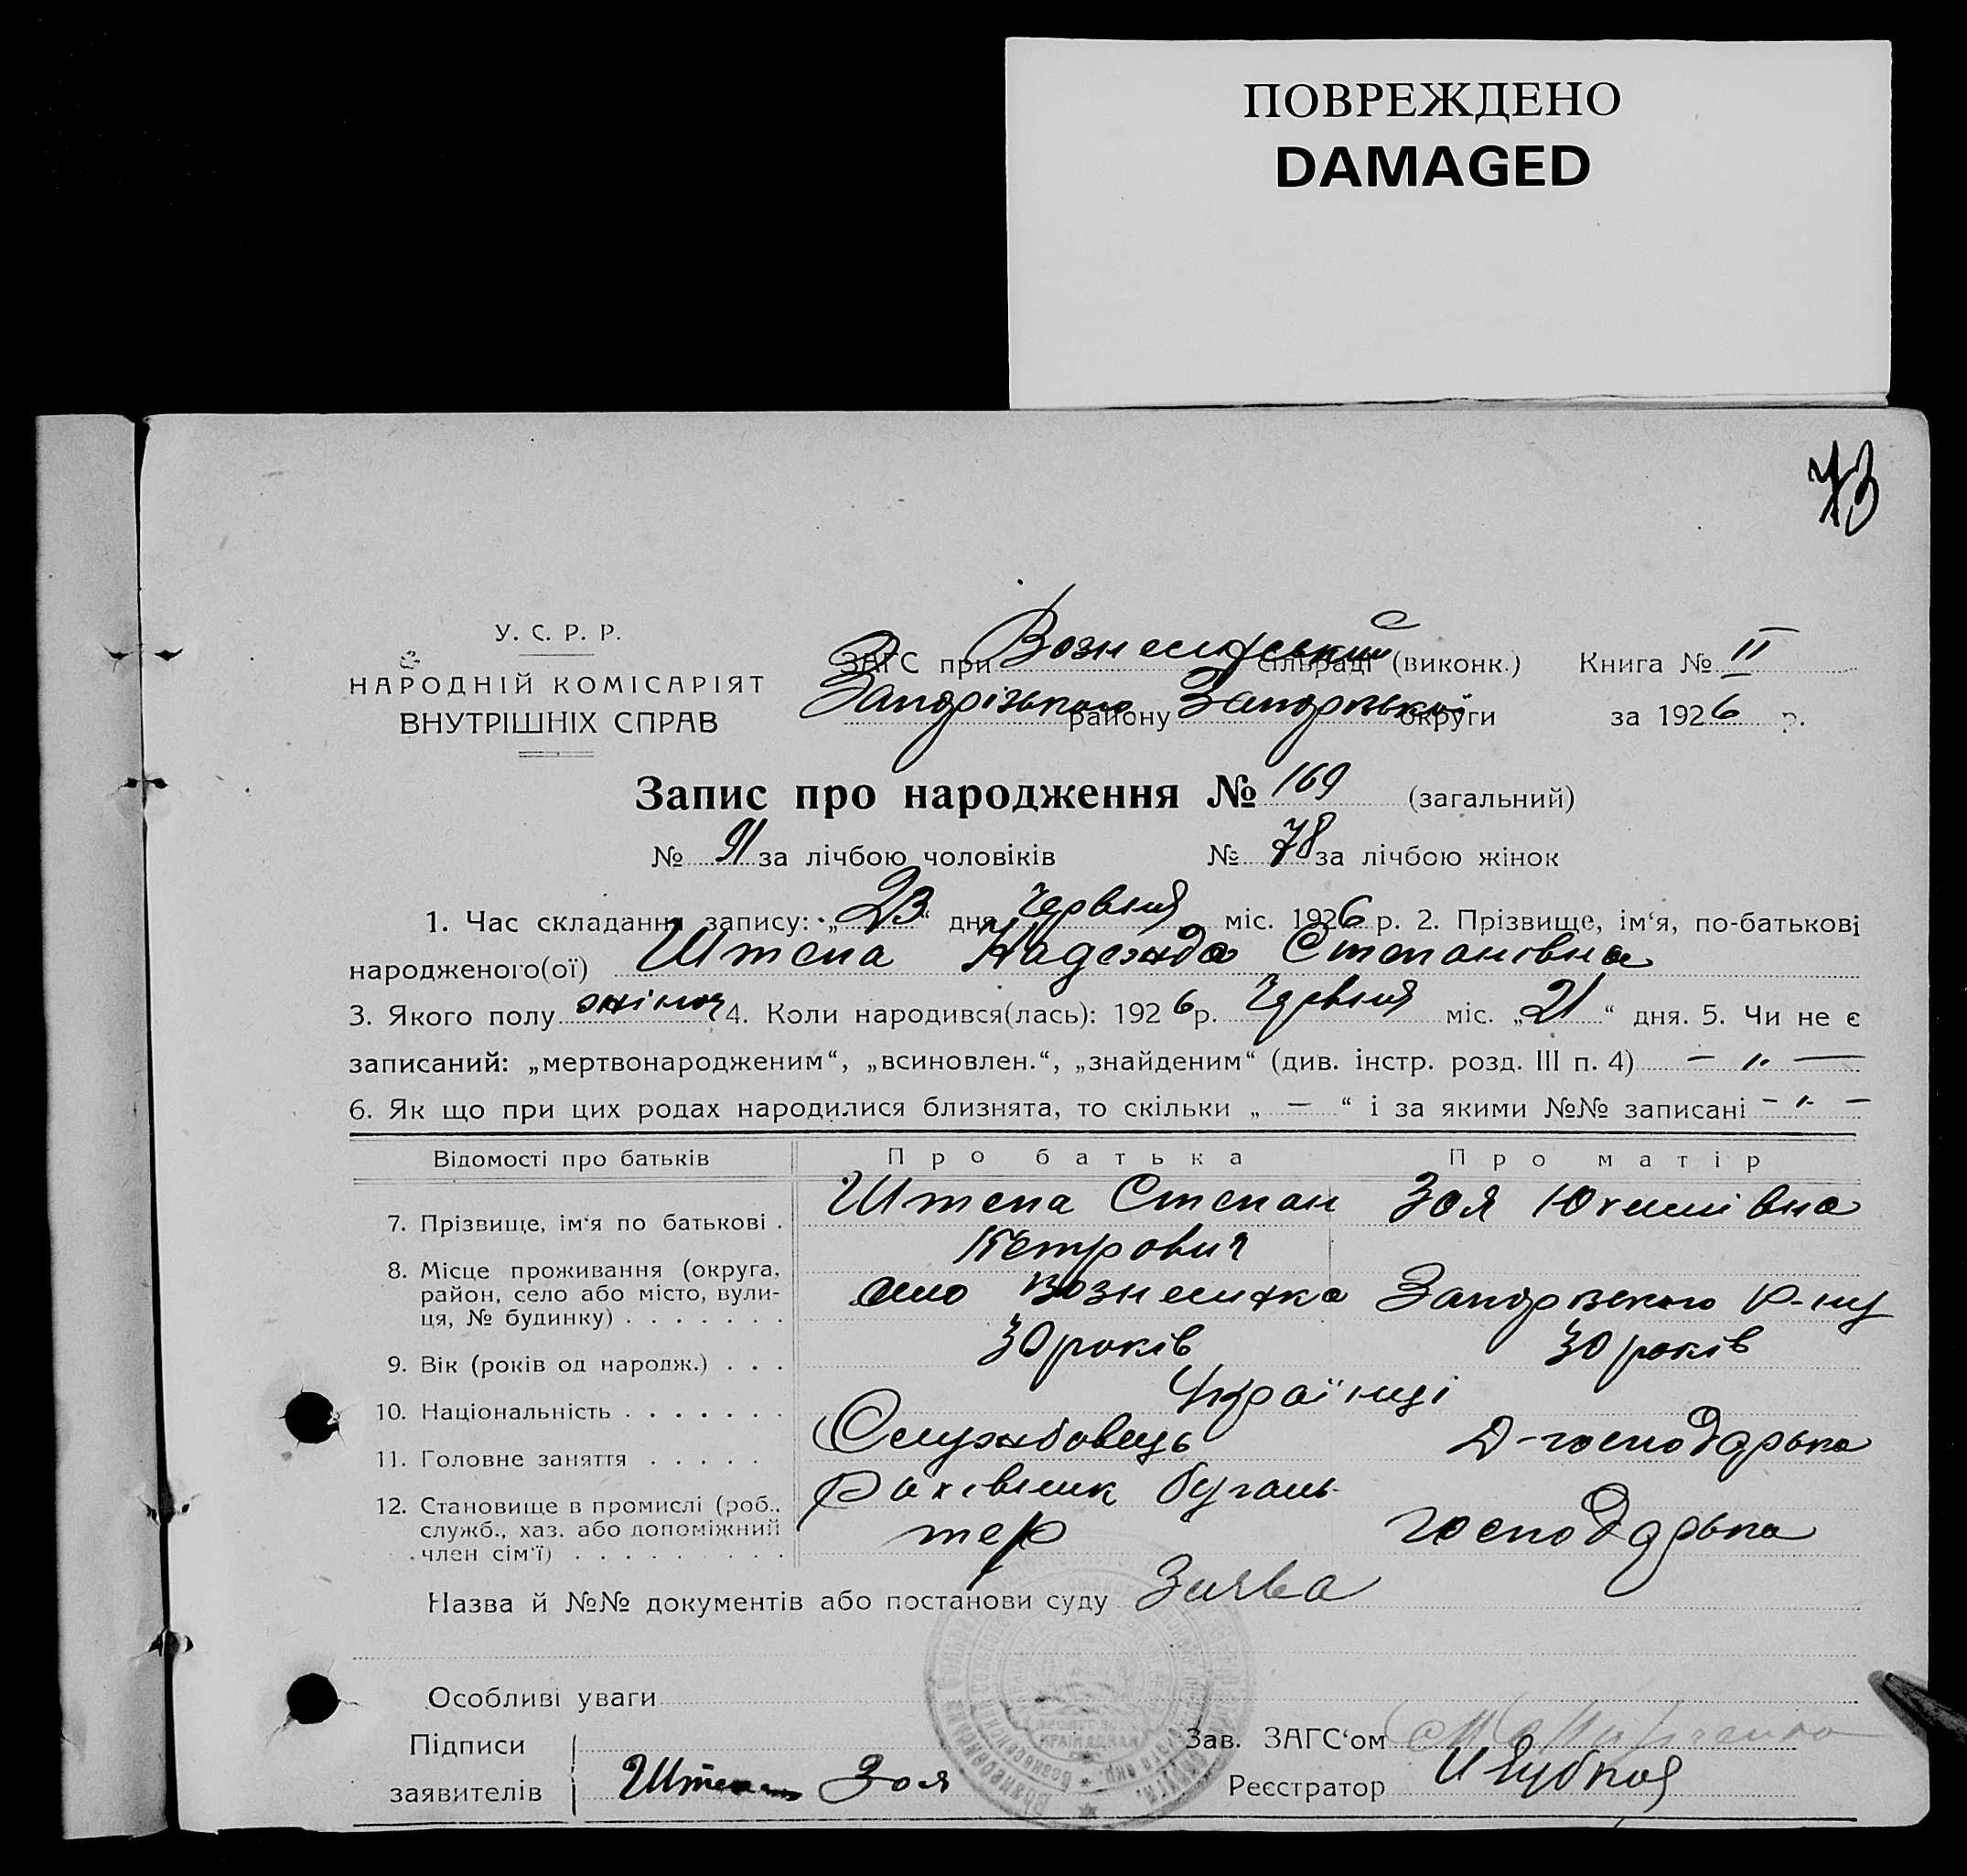 ПОВРЕЖДЕНО
DAMAGED
73
У. С. Р. Р.
НАРОДНІЙ КОМІСАРІЯТ
ВНУТРІШНІХ СПРАВ
ЗАГС при Вознесенський сільраді (виконк.) Книга № II
Запорізького району Запорізької округи за 1926 р.
Запис про народження № 169 (загальний)
№ 91 за лічбою чоловіків № 78 за лічбою жінок
1. Час складання запису: „23“ дня Червня міс. 1926 р. 2. Прізвище, ім‘я, по-батькові
народженого(ої) Штепа Надежда Степановна
3. Якого полу жіноч 4. Коли народився(лась): 1926 р. Червня міс. „21“ дня. 5. Чи не є
записаний: „мертвонародженим“, „всиновлен.“, „знайденим“ (див. інстр. розд. III п. 4) — „ —
6. Як що при цих родах народилися близнята, то скільки „ — “ і за якими №№ записані — „ —
Відомості про батьків Про батька Про матір
7. Прізвище, ім‘я по батькові . Штепа Степан Зоя Юхимівна
Петрович
8. Місце проживання (округа,
район, село або місто, вули-
ця, № будинку) . . . . . . . село Вознесенка Запорізького р-ну
9. Вік (років од народж.) . . . 30 років 30 років
10. Національність . . . . . . . Українці
11. Головне заняття . . . . . Службовець Д-господарька
12. Становище в промислі (роб.,
служб., хаз. або допоміжний
член сім‘ї) . . . . . . . . . Рахівник бугаль-
тер господарька
Назва й №№ документів або постанови суду Заява
Особливі уваги
Підписи
заявителів Штепа Зоя
Зав. ЗАГС‘ом
Реєстратор